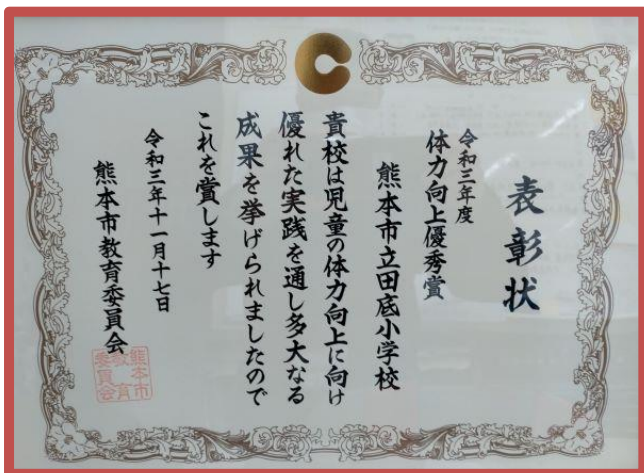 表彰状
令和三年度
体力向上優秀賞
熊本市立田底小学校
貴校は児童の体力向上に向け
優れた実践を通し多大なる
成果を挙げられましたので
これを賞します
令和三年十一月十七日
熊本市教育委員会
熊本市
教育
委員会